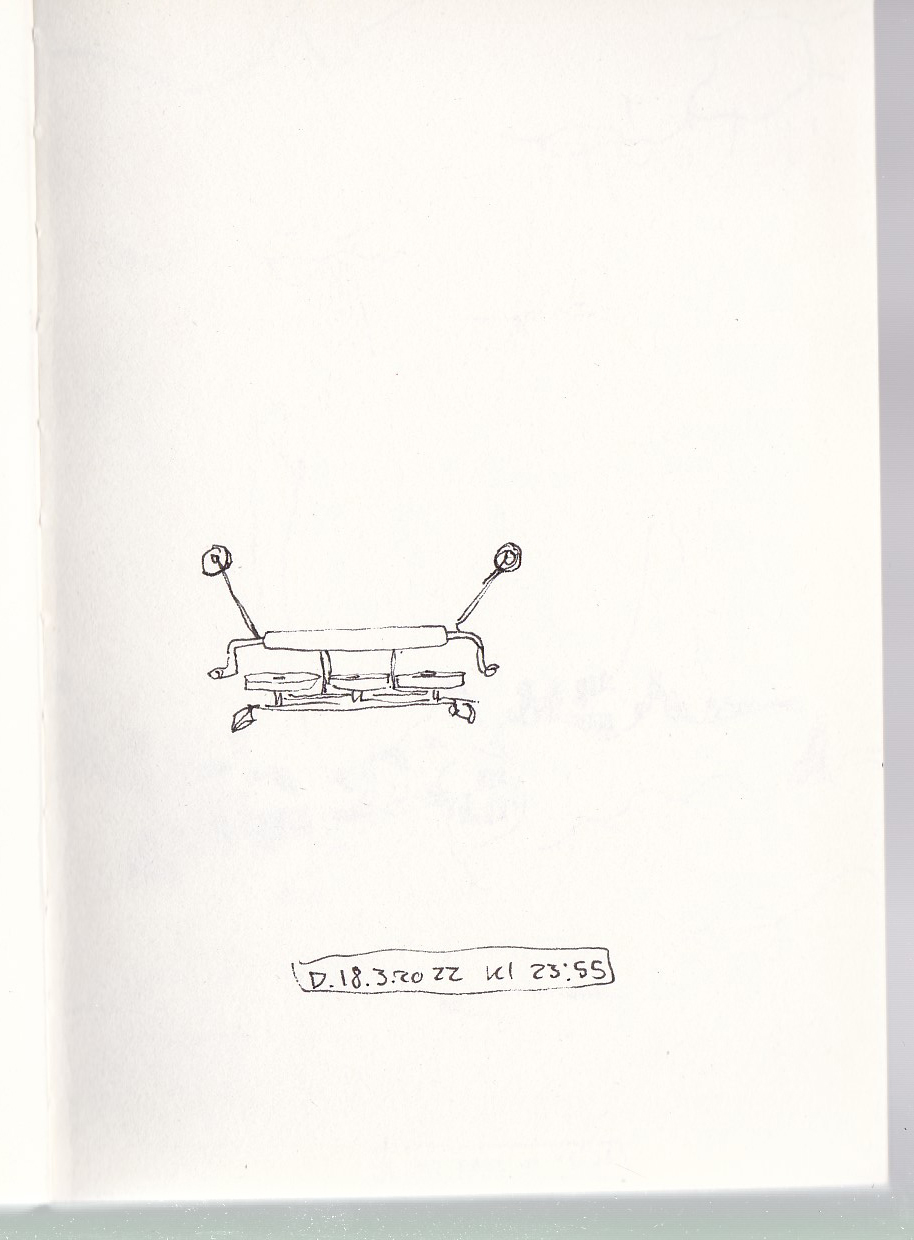 D.18.3.2022 Kl 23:55